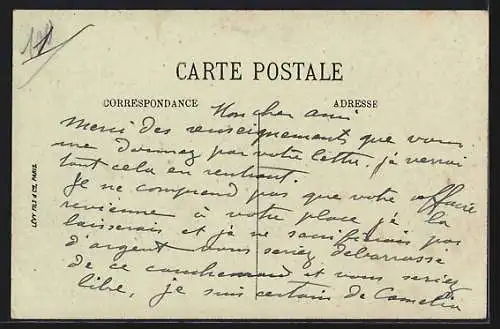 CARTE POSTALE
CORRESPONDANCE
ADRESSE
LÉVY FILS & CIE, PARIS
Mon cher ami
Merci des renseignements que vous
me donnez par votre lettre. je verrai
tout cela en rentrant.
Je ne comprend pas que votre affaire
revienne à votre place je la
laisserais et je ne sacrifierais pas
d'argent vous seriez débarrassé
de ce cauchemard et vous seriez
libre, je suis certain de